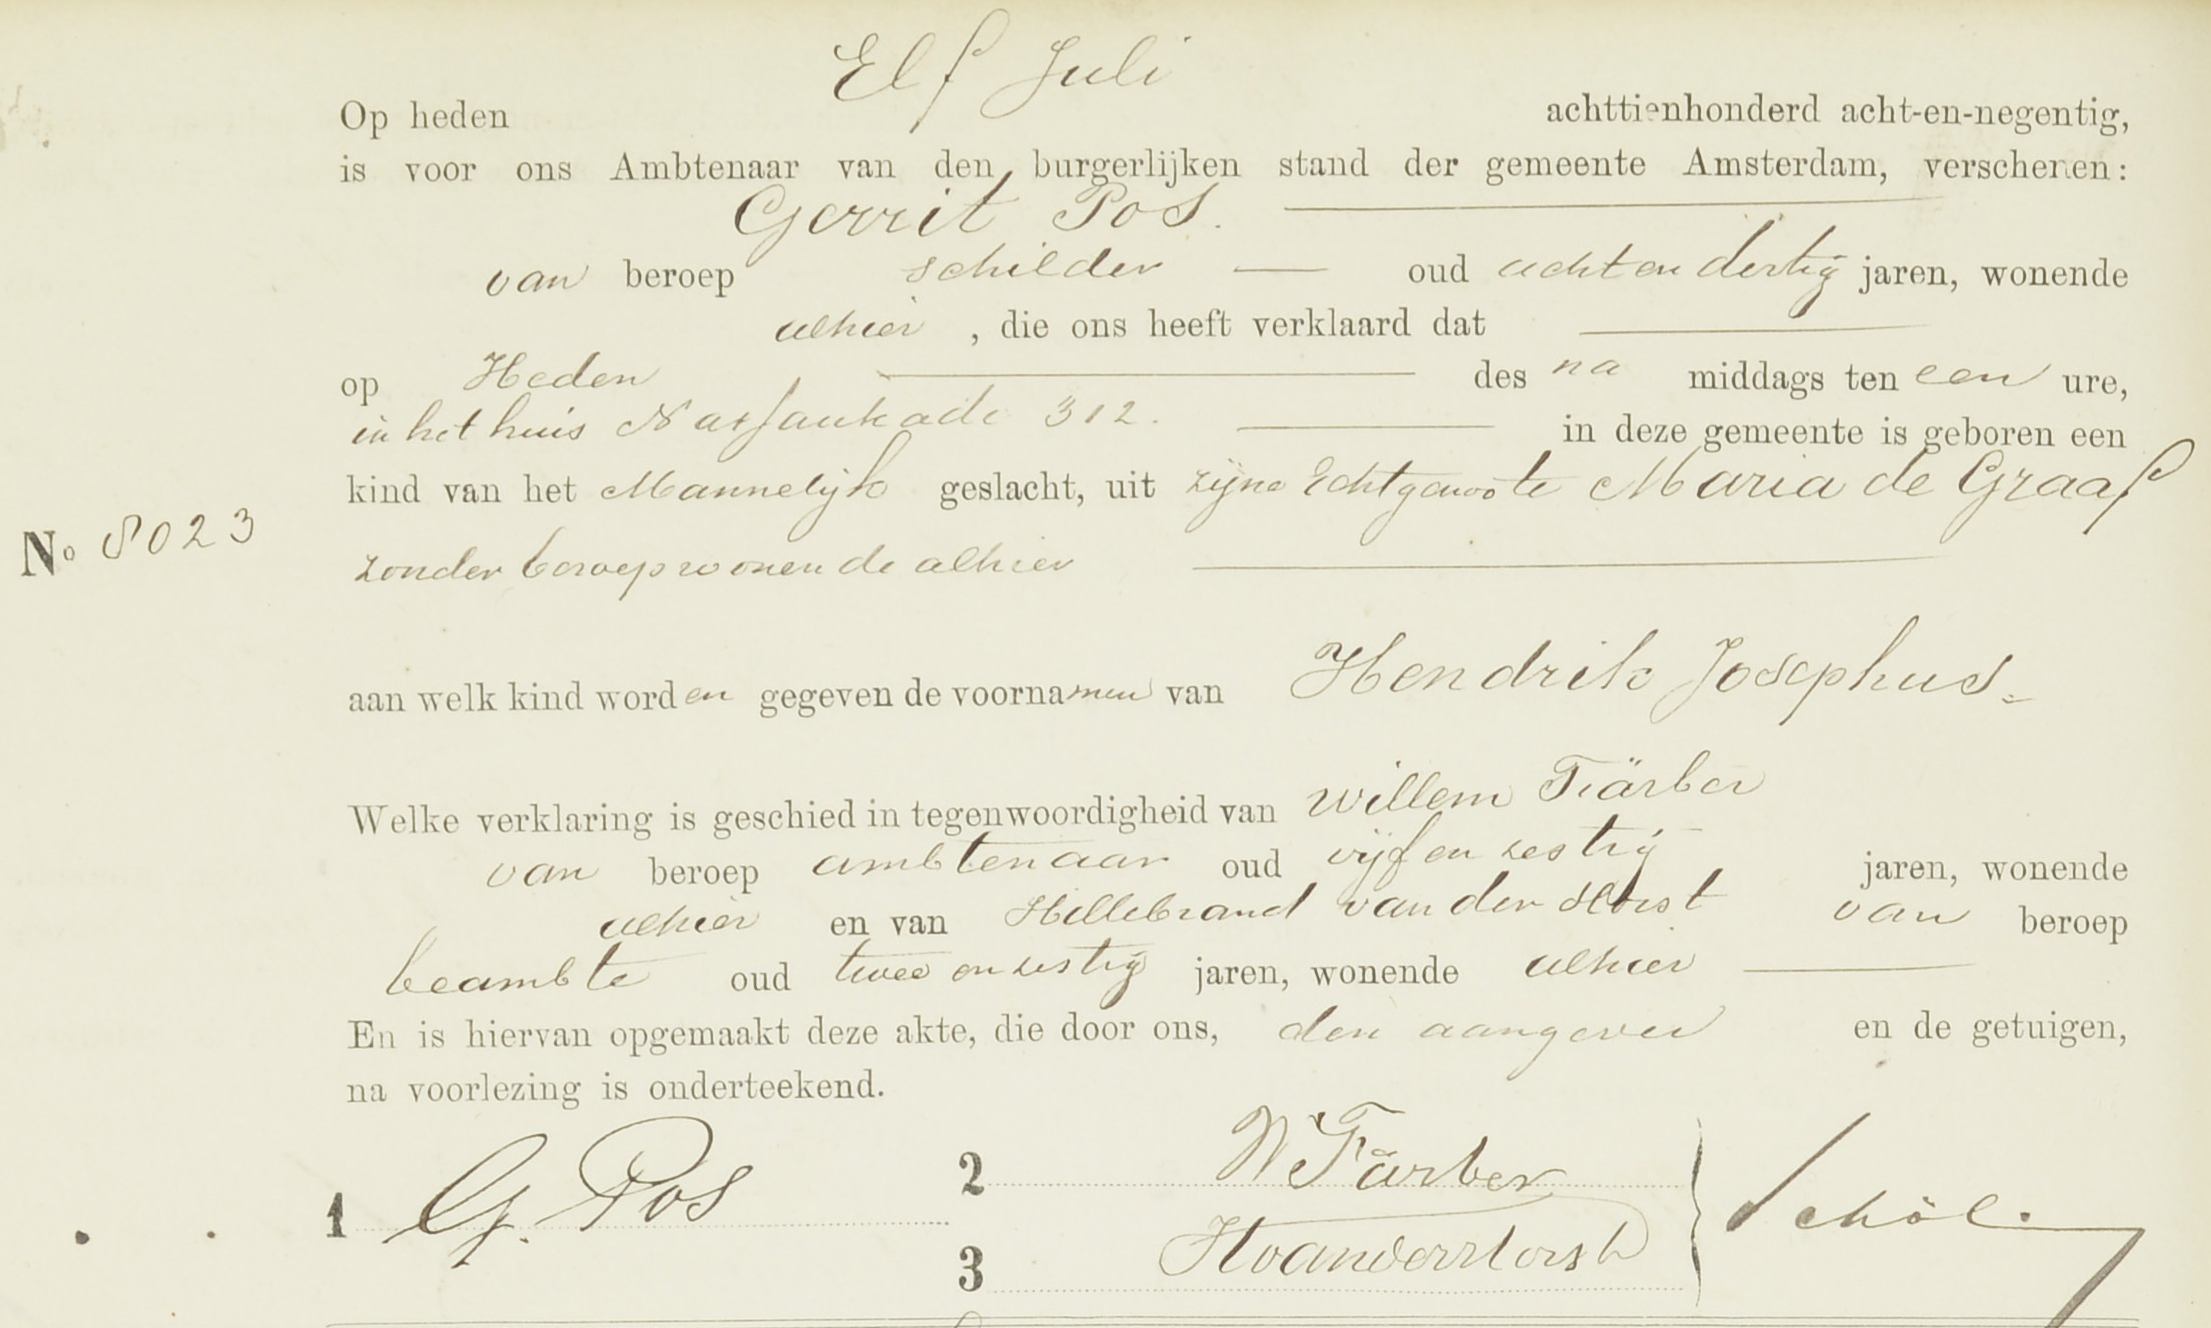 Op heden Elf Juli achttienhonderd acht-en-negentig,
is voor ons Ambtenaar van den burgerlijken stand der gemeente Amsterdam, verschenen:
Gerrit Pos.
van beroep schilder oud achtendertig jaren, wonende
alhier, die ons heeft verklaard dat
op Heden des na middags ten een ure,
in het huis Nassaukade 312. in deze gemeente is geboren een
kind van het Mannelijk geslacht, uit zijne Echtgenoote Maria de Graaf
No 8023
zonder beroep wonende alhier
aan welk kind worden gegeven de voornamen van Hendrik Josephus.
Welke verklaring is geschied in tegenwoordigheid van Willem Färber
van beroep ambtenaar oud vijfenzestig jaren, wonende
alhier en van Hillebrand van der Horst van beroep
beambte oud twee en zestig jaren, wonende alhier
En is hiervan opgemaakt deze akte, die door ons, den aangever en de getuigen,
na voorlezing is onderteekend.
1 G. Pos 2 W Färber
3 HvanderHorst